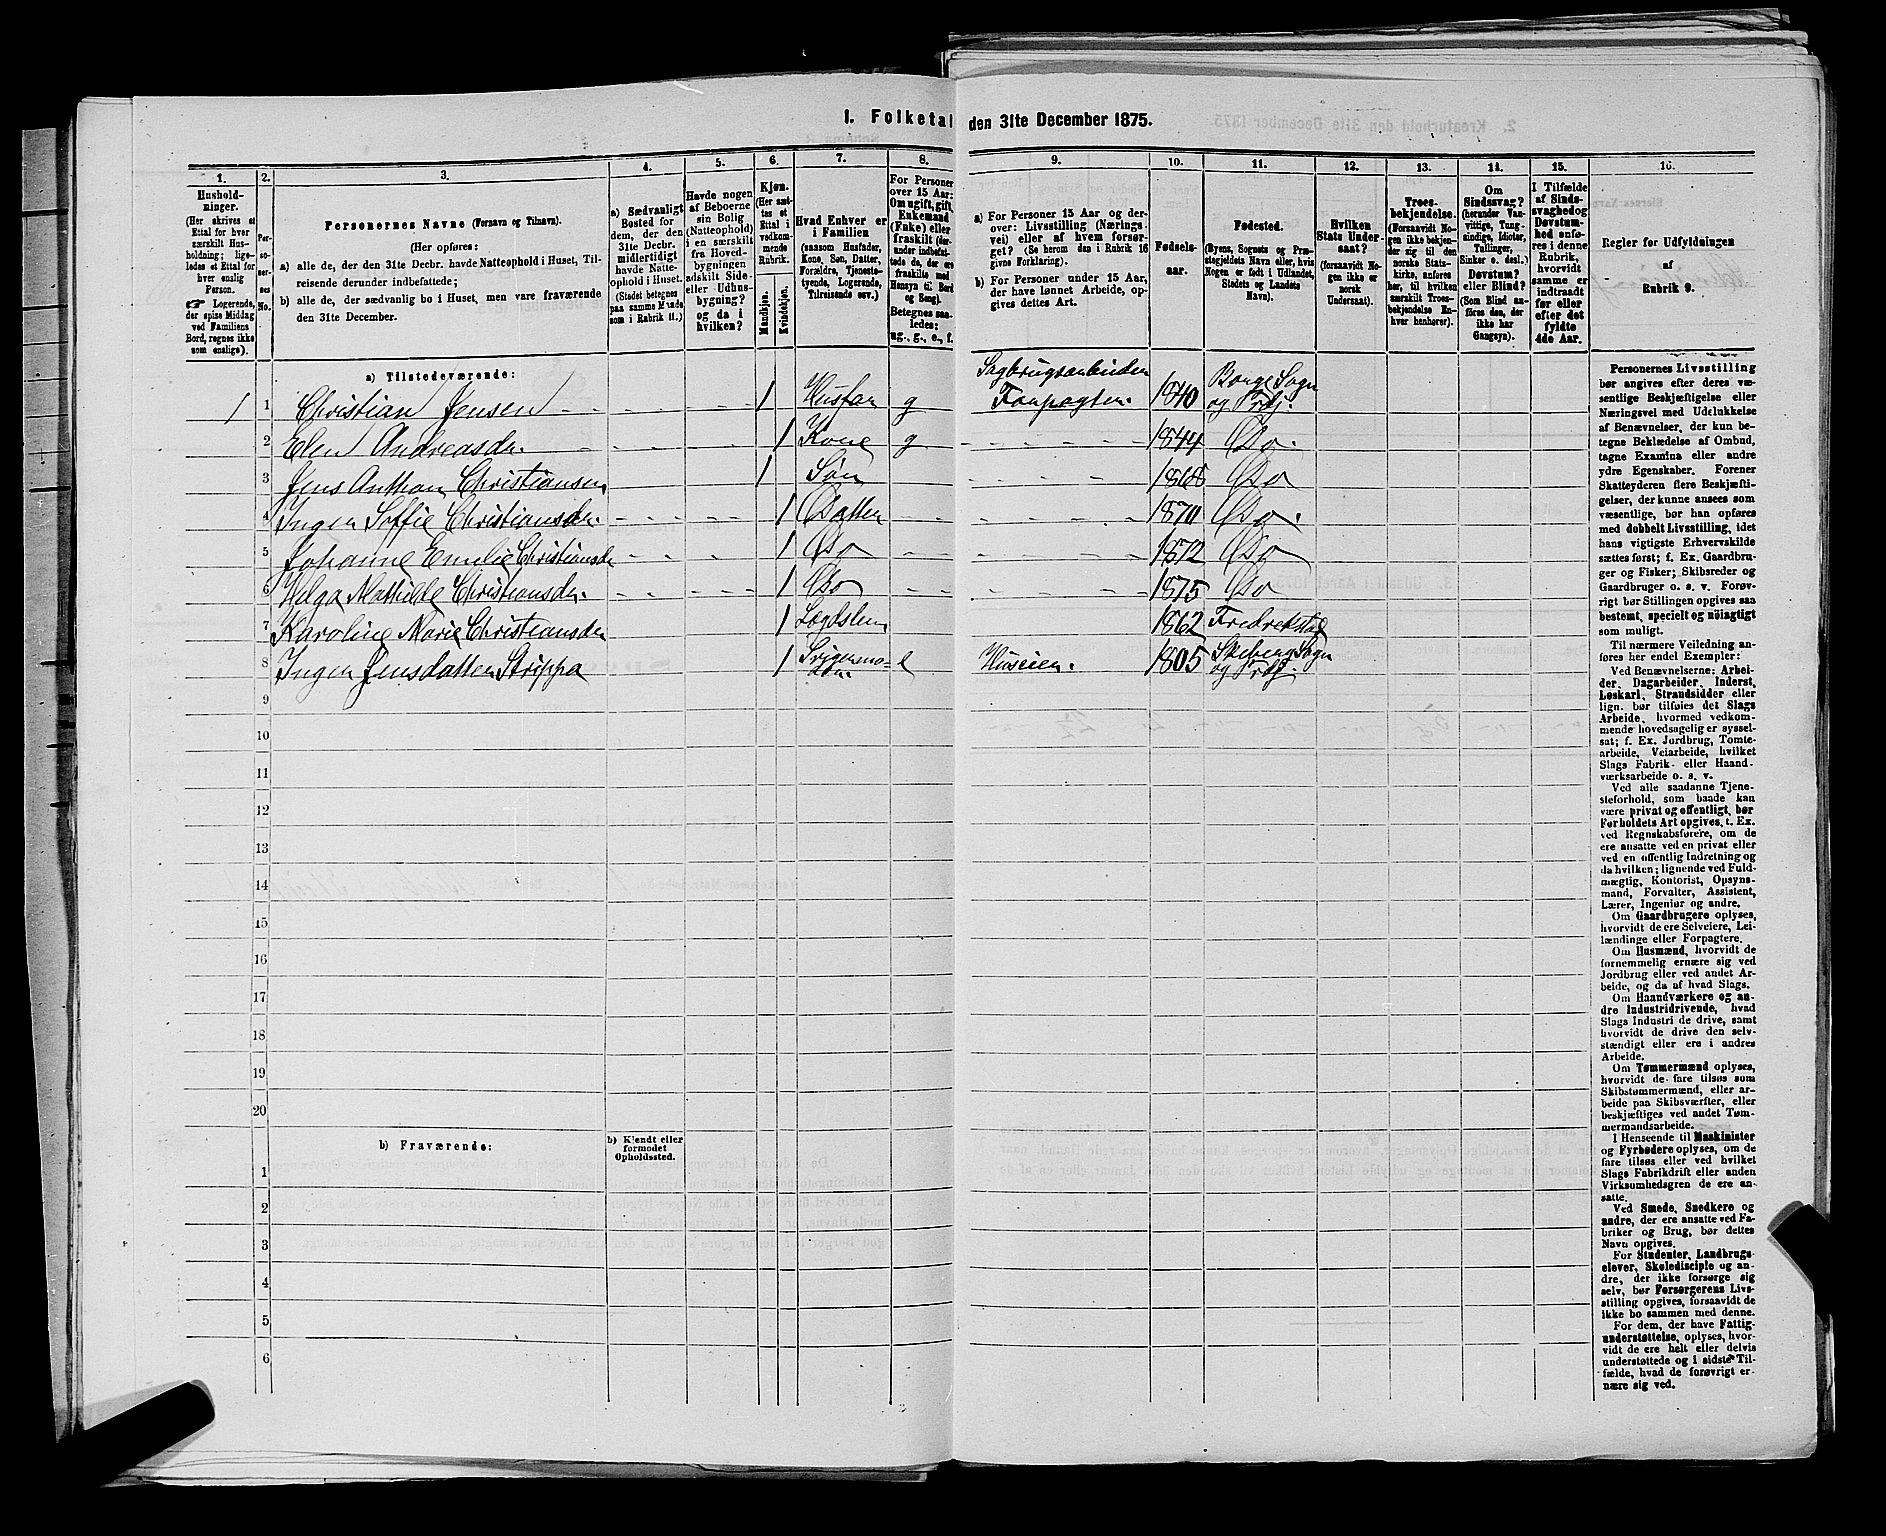 1. Folketal den 31te December 1875.
1. 2. 3. 4. 5. 6. 7. 8. 9. 10. 11. 12. 13. 14. 15. 16.
Hushold-
ninger.
(Her skrives et
Ettal for hver
særskilt Hus-
holdning; lige-
ledes et Ettal for
hver enslig
Person.
☞ Logerende,
der spise Middag
ved Familiens
Bord, regnes ikke
som enslige).
Per-
so-
ner-
nes
No.
Personernes Navne (Fornavn og Tilnavn).
(Her opføres:
a) alle de, der den 31te Decbr. havde Natteophold i Huset, Til-
reisende derunder indbefattede;
b) alle de, der sædvanlig bo i Huset, men vare fraværende
den 31te December.
a) Sædvanligt
Bosted for
dem, der den
31te Decbr.
midlertidigt
havde Natte-
ophold i Huset.
(Stedet betegnes
paa samme Maade,
som i Rubrik 11.)
Havde nogen
af Beboerne
sin Bolig
(Natteophold)
i en særskilt
fra Hoved-
bygningen
adskilt Side-
eller Udhus-
bygning?
og da i
hvilken?
Kjøn.
(Her sæt-
tes et
Ettal i
vedkom-
mende
Rubrik.
Mandkjøn.
Kvindekjøn.
Hvad Enhver er
i Familien
(saasom Husfader,
Kone, Søn, Datter,
Forældre, Tjeneste-
tyende, Logerende,
Tilreisende osv.)
For Personer
over 15 Aar:
Om ugift, gift,
Enkemand
(Enke) eller
fraskilt (der-
under indbefat-
tede de, der ere
fraskilte med
Hensyn til Bord
og Seng).
Betegnes saa-
ledes:
ug., g., e., f.
a) For Personer 15 Aar og der-
over: Livsstilling (Nærings-
vei) eller af hvem forsør-
get? (Se herom den i Rubrik 16
givne Forklaring).
b) For Personer under 15 Aar,
der have lønnet Arbeide, op-
gives dettes Art.
Fødsels-
aar.
Fødested.
(Byens, Sognets og Præ-
stegjeldets Navn eller, hvis
Nogen er født i Udlandet,
Stedets og Landets
Navn).
Hvilken
Stats Under-
saat?
(forsaavidt No-
gen ikke er
norsk
Undersaat).
Troes-
bekjendelse.
(Forsaavidt No-
gen ikke bekjen-
der sig til den
norske Stats-
kirke, anføres
her, til hvilken
særskilt Troes-
bekjendelse En-
hver henhører).
Om
Sindssvag?
(herunder Van-
vittige, Tung-
sindige, Idioter,
Tullinger,
Sinker o. desl.)
Døvstum?
eller Blind?
(Som Blind an-
føres den, der
ikke har
Gangsyn).
I Tilfælde
af Sinds-
svaghed og
Døvstum-
hed anfø-
res i denne
Rubrik,
hvorvidt
samme er
indtraadt
før eller
efter det
fyldte
4de Aar.
Regler for Udfyldningen
af
Rubrik 9.
a) Tilstedeværende:
1 1 Christian Jensen 1 Husfar g Sagbrugsarbeider Forpagter. 1840 Borge Sogn og Prdj.
2 Elen Andreasdr. 1 Kone g 1844 Do.
3 Jens Anthon Christiansen 1 Søn 1868 Do
4 Inger Soffie Christiansdr. 1 Datter 1870 Do.
5 Johanne Emilie Christiansdr 1 Do 1872 Do
6 Helga Mathilde Christiansdr. 1 Do 1875 Do
7 Karoline Marie Christiansdr 1 Lægdslem 1862 Fredrikstad
8 Inger Jensdatter Strippa 1 Svigermo- e Huseier. 1805 Skeberg Sogn og Prdj.
9
10
11
12
13
14
15
16
17
18
19
20
b) Fraværende:
b) Kjendt eller
formodet
Opholdssted.
1
2
3
4
5
6
Personernes Livsstilling
bør angives efter deres væ-
sentlige Beskjæftigelse eller
Næringsvei med Udelukkelse
af Benævnelser, der kun be-
tegne Beklædelse af Ombud,
tagne Examina eller andre
ydre Egenskaber. Forener
Skatteyderen flere Beskjæfti-
gelser, der kunne ansees som
væsentlige, bør han opføres
med dobbelt Livsstilling, idet
hans vigtigste Erhvervskilde
sættes først; f. Ex. Gaardbru-
ger og Fisker; Skibsreder og
Gaardbruger o. s. v. Forøv-
rigt bør Stillingen opgives saa
bestemt, specielt og nøiagtigt
som muligt.
Til nærmere Veiledning an-
føres her endel Exempler:
Ved Benævnelserne: Arbei-
der, Dagarbeider, Inderst,
Løskarl, Strandsidder eller
lign. bør tilføies det Slags
Arbeide, hvormed vedkom-
mende hovedsagelig er syssel-
sat; f. Ex. Jordbrug, Tomte-
arbeide, Veiarbeide, hvilket
Slags Fabrik- eller Haand-
værksarbeide o. s. v.
Ved alle saadanne Tjene-
steforhold, som baade kan
være privat og offentligt, bør
Forholdets Art opgives, t. Ex.
ved Regnskabsførere, om de
ere ansatte ved en privat eller
ved en offentlig Indretning og
da hvilken; lignende ved Fuld-
mægtig, Kontorist, Opsyns-
mand, Forvalter, Assistent,
Lærer, Ingeniør og andre.
Om Gaardbrugere oplyses,
hvorvidt de ere Selveiere, Lei-
lændinge eller Forpagtere.
Om Husmænd, hvorvidt de
fornemmelig ernære sig ved
Jordbrug eller ved andet Ar-
beide, og da af hvad Slags.
Om Haandværkere og an-
dre Industridrivende, hvad
Slags Industri de drive, samt
hvorvidt de drive den selv-
stændigt eller ere i andres
Arbeide.
Om Tømmermænd oplyses,
hvorvidt de fare tilsøs som
Skibstømmermænd, eller ar-
beide paa Skibsværfter, eller
beskjæftiges ved andet Tøm-
mermandsarbeide.
I Henseende til Maskinister
og Fyrbødere oplyses, om de
fare tilsøs eller ved hvilket
Slags Fabrikdrift eller anden
Virksomhedsgren de ere an-
satte.
Ved Smede, Snedkere og
andre, der ere ansatte ved Fa-
briker og Brug, bør dettes
Navn opgives.
For Studenter, Landbrugs-
elever, Skoledisciple og an-
dre, der ikke forsørge sig
selv, bør Forsørgerens Livs-
stilling opgives, forsaavidt de
ikke bo sammen med denne.
For dem, der have Fattig-
understøttelse, oplyses, hvor-
vidt de ere helt eller delvis
understøttede og i sidste Til-
fælde, hvad de forøvrigt er-
nære sig ved.